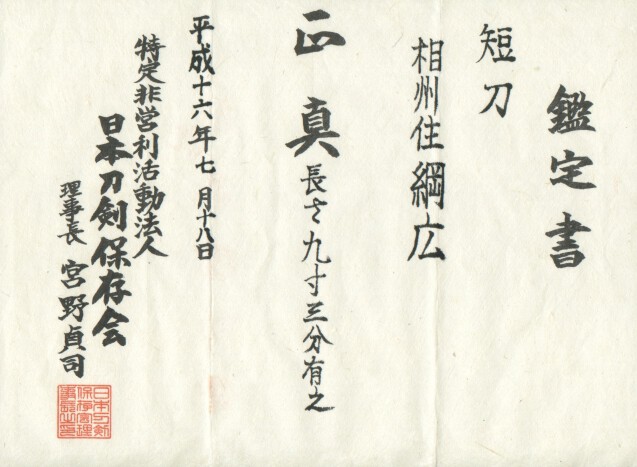 鑑定書
短刀
相州住綱広
正真 長さ九寸三分有之
平成十六年七月十八日
特定非営利活動法人
日本刀剣保存会
理事長 宮野貞司